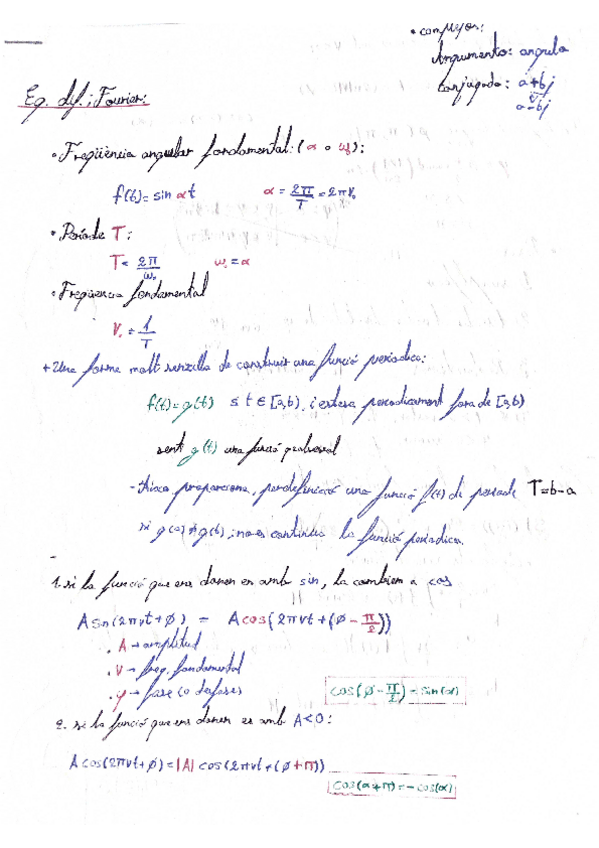 • complejos:
Argumento: angulo
conjugado: a+bj
a-bj
Eq. dif. i Fourier:
• Freqüència angular fondamental: (α o ω₀):
f(t)= sin αt    α = 2π/T = 2πν₀
• Període T:
T= 2π/ω₀    ω₀ = α
• Freqüencia fondamental
ν₀ = 1/T
+ Una forma molt senzilla de construir una funció periodica:
f(t)=g(t) s t ∈ [a,b), i estesa periodicament fora de [a,b)
sent g(t) una funció qualsevol
- Aixo proporciona, per definició una funció f(t) de periode T=b-a
si g(a)≠g(b), no es continua la funció periodica.
1. si la funció que ens donen es amb sin, la cambiem a cos
A sin(2πνt+ø) = A cos(2πνt+(ø-π/2))
. A → amplitud
. ν → freq. fondamental
. φ → fase (o desfase)
cos(ø-π/2) = sin(α)
2. si la funció que ens donen es amb A<0:
A cos(2πνt+ø)=|A| cos(2πνt+(ø+π))
cos(α+π)=-cos(α)